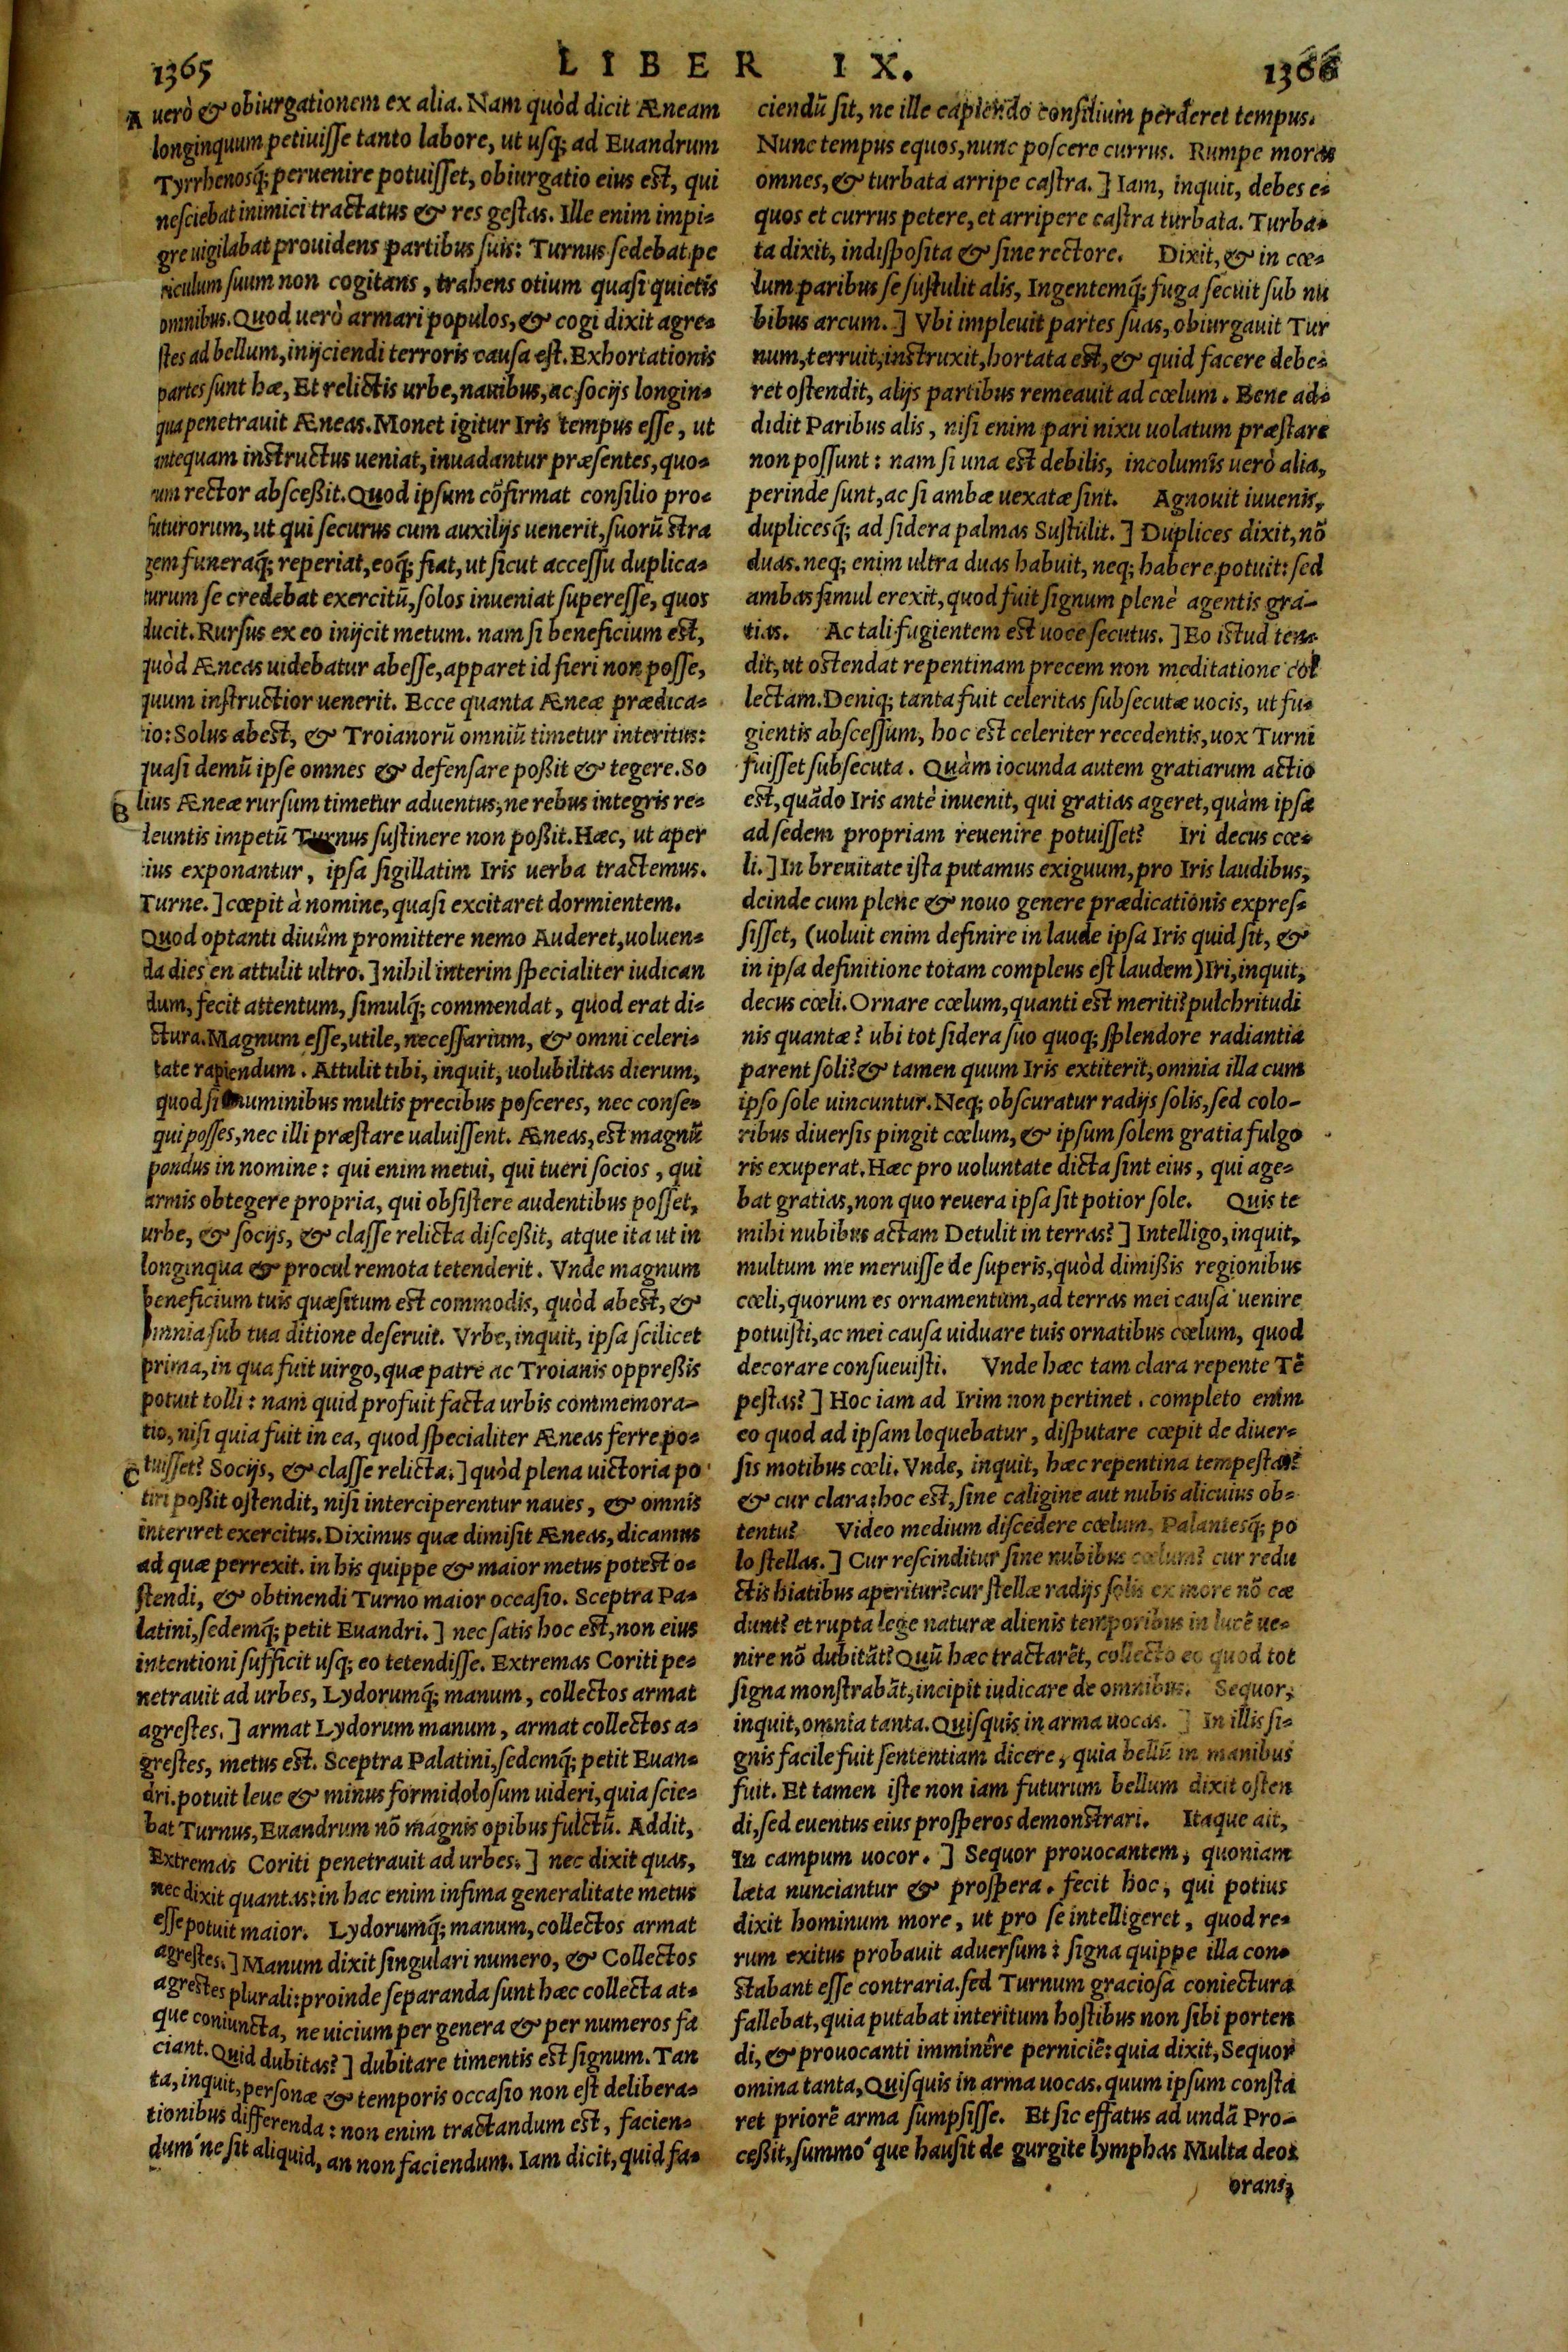 1365
LIBER IX.
1366
A
uerò & obiurgationem ex alia. Nam quòd dicit Æneam
longinquum petiuiſſe tanto labore, ut uſq; ad Euandrum
Tyrrhenosq́; peruenire potuiſſet, obiurgatio eius est, qui
neſciebat inimici tractatus & res geſtas. Ille enim impi-
gre uigilabat prouidens partibus ſuis: Turnus ſedebat pe
riculum ſuum non cogitans, trahens otium quaſi quietis
omnibus. Quod uerò armari populos, & cogi dixit agre-
ſtes ad bellum, inijciendi terroris cauſa eſt. Exhortationis
partes ſunt hæ, Et relictis urbe, nauibus, ac ſocijs longin-
qua penetrauit Æneas. Monet igitur Iris tempus eſſe, ut
antequam instructus ueniat, inuadantur præſentes, quo-
rum rector abſceßit. Quod ipſum cõfirmat conſilio pro-
futurorum, ut qui ſecurus cum auxilijs uenerit, ſuorũ stra
gem funeraq́; reperiat, eoq́; fiat, ut ſicut acceſſu duplica-
turum ſe credebat exercitũ, ſolos inueniat ſupereſſe, quos
ducit. Rurſus ex eo inijcit metum. nam ſi beneficium est,
quòd Æneas uidebatur abeſſe, apparet id fieri non poſſe,
quum inſtructior uenerit. Ecce quanta Æneæ prædica-
tio: Solus abest, & Troianorũ omniũ timetur interitus:
quaſi demũ ipſe omnes & defenſare poßit & tegere. So
B
lius Æneæ rurſum timetur aduentus, ne rebus integris re-
deuntis impetũ Turnus ſuſtinere non poßit. Hæc, ut aper
tius exponantur, ipſa ſigillatim Iris uerba tractemus.
Turne.] cœpit à nomine, quaſi excitaret dormientem.
Quod optanti diuûm promittere nemo Auderet, uoluen-
da dies en attulit ultro.] nihil interim ſpecialiter iudican
dum, fecit attentum, ſimulq́; commendat, quod erat di-
ctura. Magnum eſſe, utile, neceſſarium, & omni celeri-
tate rapiendum. Attulit tibi, inquit, uolubilitas dierum,
quod ſi numinibus multis precibus poſceres, nec conſe-
qui poſſes, nec illi præſtare ualuiſſent. Æneas, est magnũ
pondus in nomine: qui enim metui, qui tueri ſocios, qui
armis obtegere propria, qui obſiſtere audentibus poſſet,
urbe, & ſocijs, & claſſe relicta diſceßit, atque ita ut in
longinqua & procul remota tetenderit. Vnde magnum
beneficium tuis quæſitum est commodis, quòd abest, &
omnia ſub tua ditione deſeruit. Vrbe, inquit, ipſa ſcilicet
prima, in qua fuit uirgo, quæ patre ac Troianis oppreßis
potuit tolli: nam quid profuit facta urbis commemora-
tio, niſi quia fuit in ea, quod ſpecialiter Æneas ferre po-
C
tuiſſet? Socijs, & claſſe relicta.] quòd plena uictoria po
tiri poßit oſtendit, niſi interciperentur naues, & omnis
interiret exercitus. Diximus quæ dimiſit Æneas, dicamus
ad quæ perrexit. in his quippe & maior metus potest o-
ſtendi, & obtinendi Turno maior occaſio. Sceptra Pa-
latini, ſedemq́; petit Euandri.] nec ſatis hoc est, non eius
intentioni ſufficit uſq; eo tetendiſſe. Extremas Coriti pe-
netrauit ad urbes, Lydorumq́; manum, collectos armat
agreſtes.] armat Lydorum manum, armat collectos a-
greſtes, metus est. Sceptra Palatini, ſedemq́; petit Euan-
dri. potuit leue & minus formidoloſum uideri, quia ſcie-
bat Turnus, Euandrum nõ magnis opibus fulctũ. Addit,
Extremas Coriti penetrauit ad urbes.] nec dixit quas,
nec dixit quantas: in hac enim infima generalitate metus
eſſe potuit maior. Lydorumq́; manum, collectos armat
agreſtes.] Manum dixit ſingulari numero, & Collectos
agrestes plurali: proinde ſeparanda ſunt hæc collecta at-
que coniuncta, ne uicium per genera & per numeros fa
ciant. Quid dubitas?] dubitare timentis est ſignum. Tan
ta, inquit, perſonæ & temporis occaſio non eſt delibera-
tionibus differenda: non enim tractandum est, facien-
dum ne ſit aliquid, an non faciendum. Iam dicit, quid fa-
ciendũ ſit, ne ille capiendo conſilium perderet tempus.
Nunc tempus equos, nunc poſcere currus. Rumpe moras
omnes, & turbata arripe caſtra.] Iam, inquit, debes e-
quos et currus petere, et arripere caſtra turbata. Turba-
ta dixit, indiſpoſita & ſine rectore. Dixit, & in cœ-
lum paribus ſe ſuſtulit alis, Ingentemq́; fuga ſecuit ſub nu
bibus arcum.] Vbi impleuit partes ſuas, obiurgauit Tur
num, terruit, instruxit, hortata est, & quid facere debe-
ret oſtendit, alijs partibus remeauit ad cœlum. Bene ad-
didit Paribus alis, niſi enim pari nixu uolatum præſtare
non poſſunt: nam ſi una est debilis, incolumis uerò alia,
perinde ſunt, ac ſi ambæ uexatæ ſint. Agnouit iuuenis,
duplicesq́; ad ſidera palmas Suſtulit.] Duplices dixit, nõ
duas. neq; enim ultra duas habuit, neq; habere potuit: ſed
ambas ſimul erexit, quod fuit ſignum plenè agentis gra-
tias. Ac tali fugientem est uoce ſecutus.] Eo iſtud ten-
dit, ut ostendat repentinam precem non meditatione col
lectam. Deniq; tanta fuit celeritas ſubſecutæ uocis, ut fu-
gientis abſceſſum, hoc est celeriter recedentis, uox Turni
fuiſſet ſubſecuta. Quàm iocunda autem gratiarum actio
est, quãdo Iris antè inuenit, qui gratias ageret, quàm ipſa
ad ſedem propriam reuenire potuiſſet? Iri decus cœ-
li.] In breuitate iſta putamus exiguum, pro Iris laudibus,
deinde cum plene & nouo genere prædicationis expreſ-
ſiſſet, (uoluit enim definire in laude ipſa Iris quid ſit, &
in ipſa definitione totam compleus eſt laudem) Iri, inquit,
decus cœli. Ornare cœlum, quanti est meriti? pulchritudi
nis quantæ? ubi tot ſidera ſuo quoq; ſplendore radiantia
parent ſoli? & tamen quum Iris extiterit, omnia illa cum
ipſo ſole uincuntur. Neq; obſcuratur radijs ſolis, ſed colo-
ribus diuerſis pingit cœlum, & ipſum ſolem gratia fulgo
ris exuperat. Hæc pro uoluntate dicta ſint eius, qui age-
bat gratias, non quo reuera ipſa ſit potior ſole. Quis te
mihi nubibus actam Detulit in terras?] Intelligo, inquit,
multum me meruiſſe de ſuperis, quòd dimißis regionibus
cœli, quorum es ornamentum, ad terras mei cauſa uenire
potuiſti, ac mei cauſa uiduare tuis ornatibus cœlum, quod
decorare conſueuiſti. Vnde hæc tam clara repente Tẽ
peſtas?] Hoc iam ad Irim non pertinet. completo enim
eo quod ad ipſam loquebatur, diſputare cœpit de diuer-
ſis motibus cœli. Vnde, inquit, hæc repentina tempeſtas?
& cur clara: hoc est, ſine caligine aut nubis alicuius ob-
tentu? Video medium diſcedere cœlum, Palantesq́; po
lo ſtellas.] Cur reſcinditur ſine nubibus cœlum? cur redu
ctis hiatibus aperitur? cur ſtellæ radijs ſolis ex more nõ cæ
dunt? et rupta lege naturæ alienis temporibus in lucẽ ue-
nire nõ dubitãt? Quũ hæc tractarẽt, collecto eo quod tot
ſigna monſtrabãt, incipit iudicare de omnibus. Sequor,
inquit, omnia tanta. Quiſquis in arma uocas.] In illis ſi-
gnis facile fuit ſententiam dicere, quia bellũ in manibus
fuit. Et tamen iſte non iam futurum bellum dixit oſten
di, ſed euentus eius proſperos demonstrari. Itaque ait,
In campum uocor.] Sequor prouocantem, quoniam
læta nunciantur & proſpera. fecit hoc, qui potius
dixit hominum more, ut pro ſe intelligeret, quod re-
rum exitus probauit aduerſum: ſigna quippe illa con-
stabant eſſe contraria. ſed Turnum gracioſa coniectura
fallebat, quia putabat interitum hoſtibus non ſibi porten
di, & prouocanti imminêre perniciẽ: quia dixit, Sequor
omina tanta, Quiſquis in arma uocas. quum ipſum conſta
ret priorẽ arma ſumpſiſſe. Et ſic effatus ad undã Pro-
ceßit, ſummo´que hauſit de gurgite lymphas Multa deos
orans,